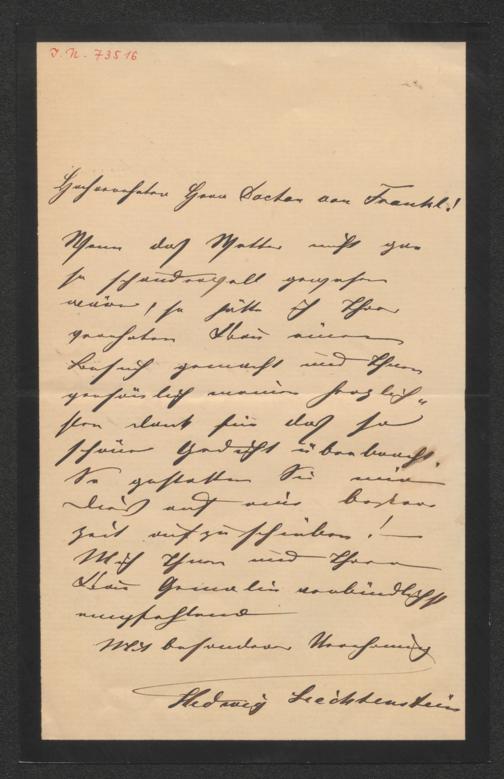 J. N. 73516
Hochverehrter Herr Doctor von Frankl!
Wenn das Wetter nicht gar
so schauderhaft gewesen
wäre, so hätte ich Ihrer
verehrten Frau einen
Besuch gemacht und Ihnen
persönlich meinen herzlich„
sten Dank für das so
schöne Gedicht überbracht.
So gestatten Sie mir
dieß auf eine bessere
Zeit aufzuschieben! —
Mich Ihnen und Ihrer
Frau Gemalin verbindlichst
empfehlend
Mit besonderer Verehrung
Hedwig Liechtenstein